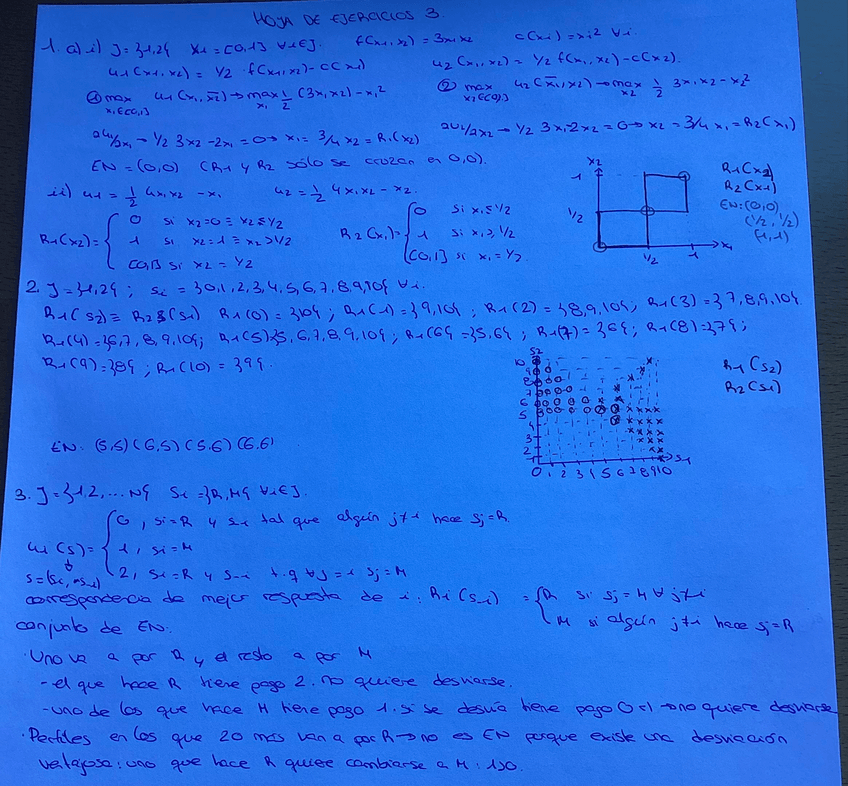 HOJA DE EJERCICIOS 3
1. a) i) J = }1,2{ Xi = [0,1] ∀i∈J. f(x1,x2) = 3x1x2 c(xi) = xi² ∀i.
u1(x1,x2) = 1/2 · f(x1,x2) - c(x1) u2(x1,x2) = 1/2 f(x1,x2) - c(x2).
① max x1∈[0,1] u1(x1,x̄2) → max x1 1/2 (3x1x2) - x1² ② max x2∈[0,1] u2(x̄1,x2) → max x2 1/2 3x1x2 - x2²
∂u1/∂x1 → 1/2 3x2 - 2x1 = 0 → x1 = 3/4 x2 = R1(x2) ∂u2/∂x2 → 1/2 3x1 - 2x2 = 0 → x2 = 3/4 x1 = R2(x1)
EN = (0,0) (R1 y R2 sólo se cruzan en 0,0).
ii) u1 = 1/2 4x1x2 - x1 u2 = 1/2 4x1x2 - x2
R1(x2) = { 0 si x2=0 ≡ x2≤1/2
1 si x2=1 ≡ x2>1/2
[0,1] si x2 = 1/2
R2(x1) = { 0 si x1≤1/2
1 si x1≥1/2
[0,1] si x1 = 1/2
x2
1
1/2
1/2
1
x1
R1(x2)
R2(x1)
EN: (0,0)
(1/2, 1/2)
(1,1)
2. J = }1,2{ ; Si = }0,1,2,3,4,5,6,7,8,9,10{ ∀i.
R1(S2) ≡ R2(S1) R1(0) = }10{ ; R1(1) = }9,10{ ; R1(2) = }8,9,10{ ; R1(3) = }7,8,9,10{
R1(4) = }6,7,8,9,10{ ; R1(5) }5,6,7,8,9,10{ ; R1(6{ = }5,6{ ; R1(7) = }6{ ; R1(8) = }7{ ;
R1(9) = }8{ ; R1(10) = }9{.
S2
10
9
8
7
6
5
4
3
2
1
0 1 2 3 4 5 6 7 8 9 10
S1
R1(S2)
R2(S1)
EN: (5,5) (6,5) (5,6) (6,6)
3. J = }1,2,...N{ Si = }R,M{ ∀i∈J.
ui(s) = { 0, si=R y s-i tal que algún j≠i hace sj=R
1, si=M
2, si=R y s-i t.q ∀j≠i sj=M
s=(si, s-i)
correspondencia de mejor respuesta de i: Ri(s-i) = { R si sj = M ∀j≠i
M si algún j≠i hace sj=R
conjunto de EN:
· Uno va a por R y el resto a por M
- el que hace R tiene pago 2. no quiere desviarse.
- uno de los que hace M tiene pago 1. si se desvía tiene pago 0<1 → no quiere desviarse
· Perfiles en los que 2 o mas van a por R → no es EN porque existe una desviación
ventajosa: uno que hace R quiere cambiarse a M: 1>0.